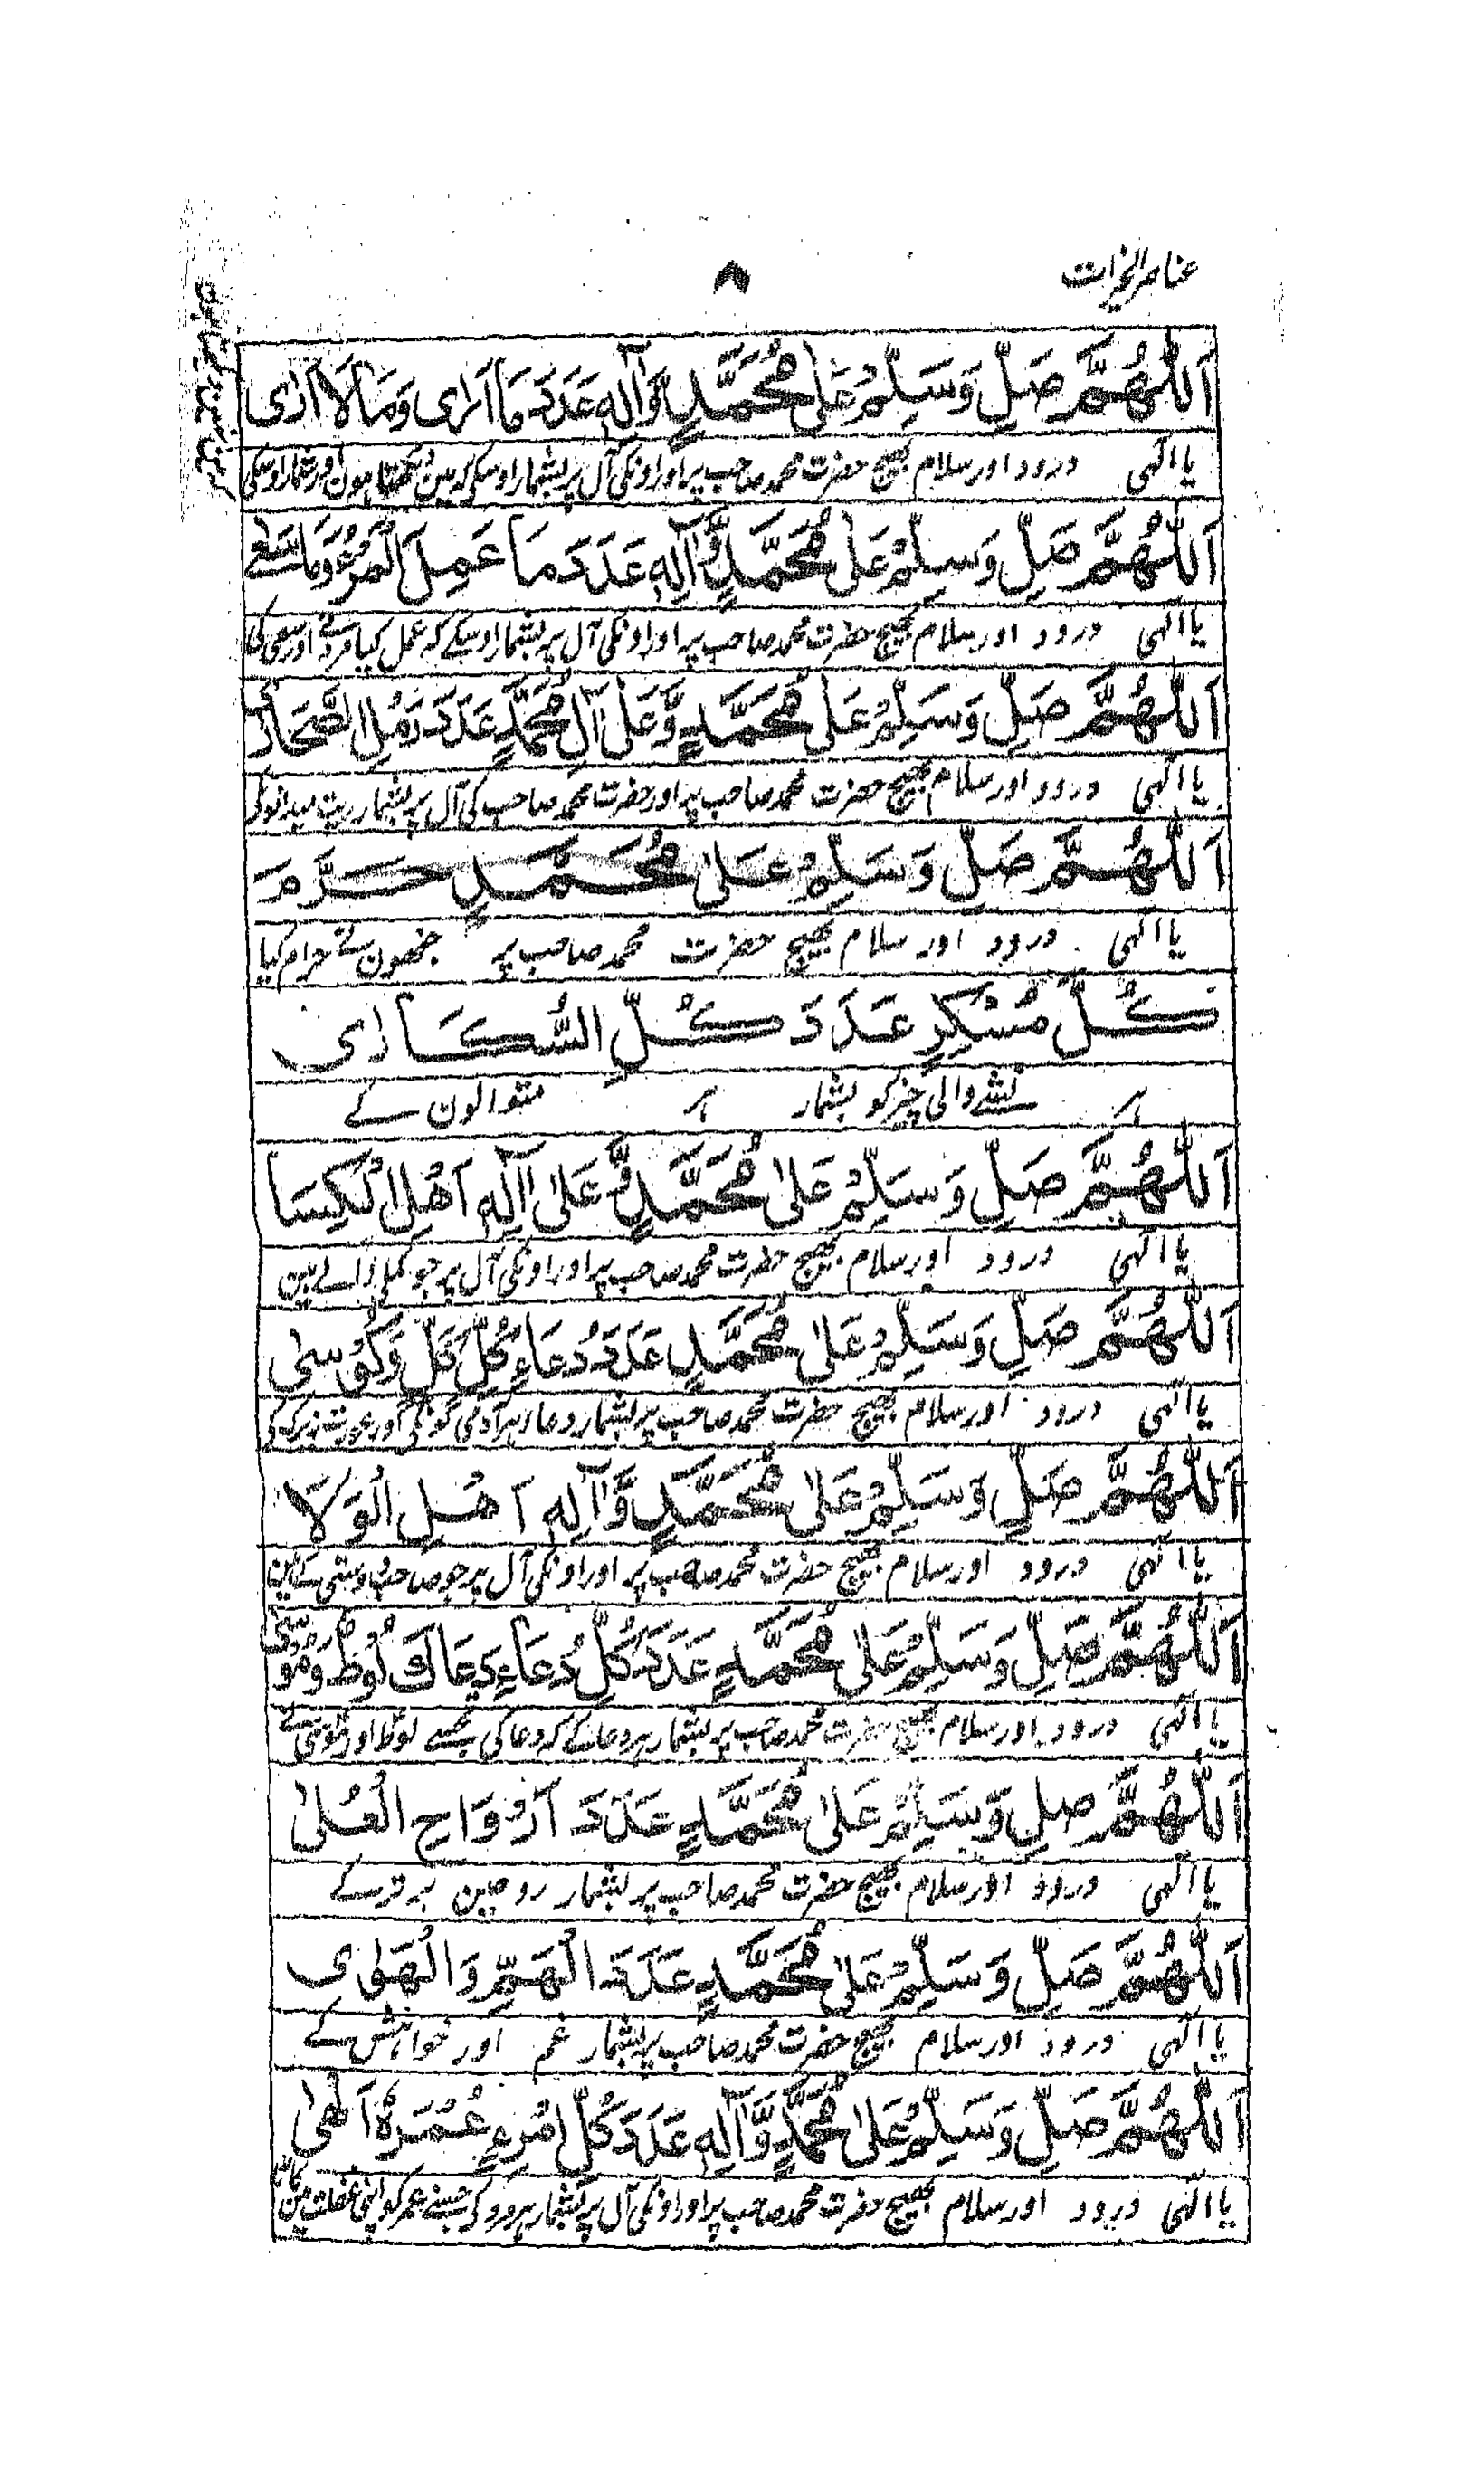 عناصر الخیرات
۸
اَللّٰهُمَّ صَلِّ وَسَلِّمْ عَلٰی مُحَمَّدٍ وَّاٰلِهٖ عَدَدَ مَا اَرٰی وَمَا لَا اَرٰی
یا الٰہی درود اور سلام بھیج حضرت محمد صاحب پر اور اونکی آل پر بشمار اوسکی کہ مین دیکھتا ہون اور شمار اوسکی
اَللّٰهُمَّ صَلِّ وَسَلِّمْ عَلٰی مُحَمَّدٍ وَّاٰلِهٖ عَدَدَ مَا عَمِلَ الْمَرْءُ وَمَا سَعٰی
یا الٰہی درود اور سلام بھیج حضرت محمد صاحب پر اور اونکی آل پر بشمار اوسکے کہ عمل کیا مرد نے اور سعی کی
اَللّٰهُمَّ صَلِّ وَسَلِّمْ عَلٰی مُحَمَّدٍ وَّعَلٰی اٰلِ مُحَمَّدٍ عَدَدَ رَمْلِ الصَّحَارٰی
یا الٰہی درود اور سلام بھیج حضرت محمد صاحب پر اور حضرت محمد صاحب کی آل پر بشمار ریت میدانونکی
اَللّٰهُمَّ صَلِّ وَسَلِّمْ عَلٰی مُحَمَّدٍ حَرَّمَ
یا الٰہی درود اور سلام بھیج حضرت محمد صاحب پر جنھون نے حرام کیا
كُلَّ مُسْكِرٍ عَدَدَ كُلِّ السُّكَارٰی
ہر ایک نشے والی چیز کو بشمار ہر متوالون کے
اَللّٰهُمَّ صَلِّ وَسَلِّمْ عَلٰی مُحَمَّدٍ وَّعَلٰی اٰلِهٖ اَهْلِ الْكِسَا
یا الٰہی درود اور سلام بھیج حضرت محمد صاحب پر اور اونکی آل پر جو کملی والے ہین
اَللّٰهُمَّ صَلِّ وَسَلِّمْ عَلٰی مُحَمَّدٍ عَدَدَ دُعَاءِ كُلِّ كَلٍّ وَكُوْسٰی
یا الٰہی درود اور سلام بھیج حضرت محمد صاحب پر بشمار دعا ہر آدمی گونگی اور عورت زیرک کی
اَللّٰهُمَّ صَلِّ وَسَلِّمْ عَلٰی مُحَمَّدٍ وَّاٰلِهٖ اَهْلِ الْوَلَا
یا الٰہی درود اور سلام بھیج حضرت محمد صاحب پر اور اونکی آل پر جو صاحب دوستی کے ہین
اَللّٰهُمَّ صَلِّ وَسَلِّمْ عَلٰی مُحَمَّدٍ عَدَدَ كُلِّ دُعَاءٍ دَعَاكَ لُوْطٌ وَمُوْسٰی
یا الٰہی درود اور سلام بھیج حضرت محمد صاحب پر بشمار ہر دعا کے کہ دعا کی تجھسے لوط اور موسی نے
اَللّٰهُمَّ صَلِّ وَسَلِّمْ عَلٰی مُحَمَّدٍ عَدَدَ اَرْوَاحِ الْعُلٰی
یا الٰہی درود اور سلام بھیج حضرت محمد صاحب پر بشمار روحین برتر کے
اَللّٰهُمَّ صَلِّ وَسَلِّمْ عَلٰی مُحَمَّدٍ عَدَدَ الْهَمِّ وَالْهَوٰی
یا الٰہی درود اور سلام بھیج حضرت محمد صاحب پر بشمار غم اور خواہش کے
اَللّٰهُمَّ صَلِّ وَسَلِّمْ عَلٰی مُحَمَّدٍ وَّاٰلِهٖ عَدَدَ كُلِّ امْرِءٍ عُمْرَهٗ اَلْهٰی
یا الٰہی درود اور سلام بھیج حضرت محمد صاحب پر اور اونکی آل پر بشمار ہر مرد کی جسنے عمر کو اپنی غفلت مین کاٹا